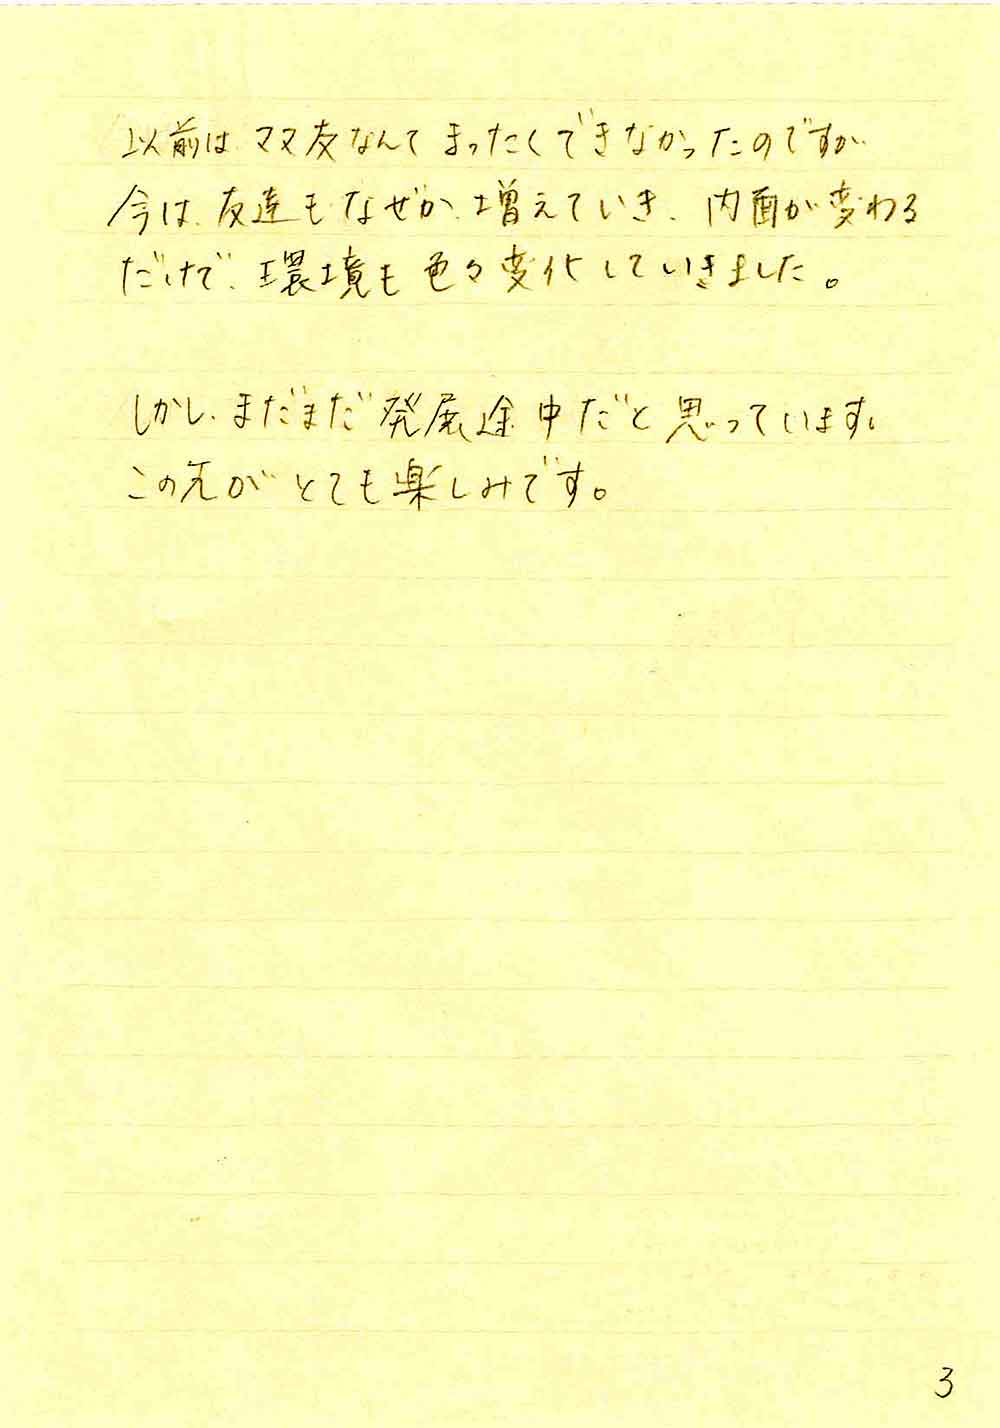 以前は ママ友なんて まったくできなかったのですが
今は、友達も なぜか、増えていき、内面が変わる
だけで、環境も 色々変化していきました。
しかし、まだまだ 発展途中だと思っています。
この先が とても楽しみです。
3